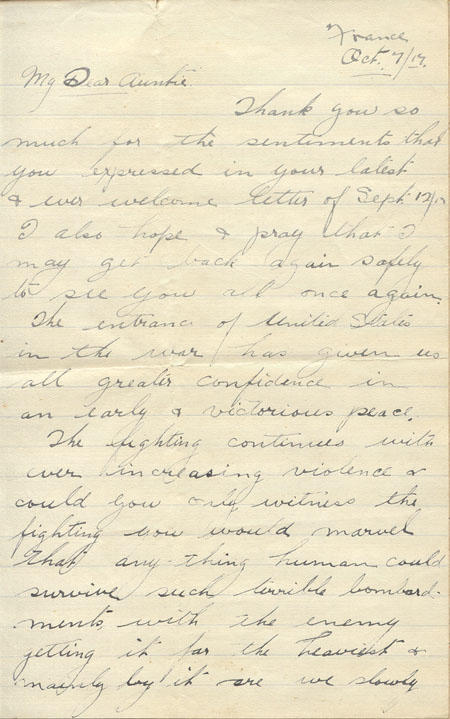 France
Oct. 7/17.
My Dear Auntie.
Thank you so
much for the sentiments that
you expressed in your latest
& ever welcome letter of Sept 12/17
I also hope & pray that I
may get back again safely
to see you all once again.
The entranc of United States
in the war has given us
all greater confidence in
an early & victorious peace.
The fighting continues with
ever increasing violence &
could you only witness the
fighting you would marvel
that any-thing human could
survive such terrible bombard-
ments, with the enemy
getting it far the heaviest &
mainly by it are we slowly